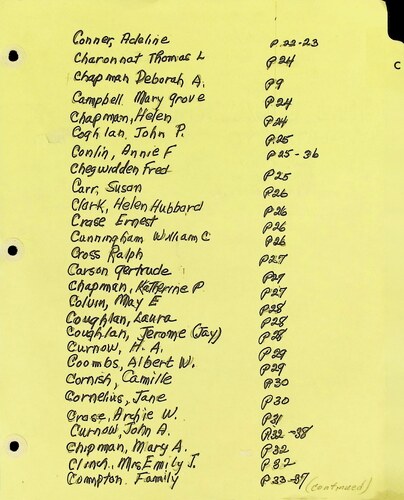 Conner, Adeline P. 22-23
Charonnat Thomas L P24
Chapman Deborah A. P9
Campbell Mary Grove P24
Chapman, Helen P24
Coghlan, John P. P.25
Conlin, Annie F P25-36
Chegwidden Fred P25
Carr, Susan P26
Clark, Helen Hubbard P26
Crase Ernest P26
Cunningham William C P26
Cross Ralph P27
Carson Gertrude P27
Chapman, Katherine P P27
Colvin, May E P28
Coughlan, Laura P28
Coughlan, Jerome (Jay) P28
Curnow, H. A. P29
Coombs, Albert W. P29
Cornish, Camille P30
Cornelius, Jane P30
Crase, Archie W. P31
Curnow, John A. P32-38
Chipman, Mary A. P32
Clinch, Mrs Emily J. P32
Compton Family P33-37
(continued)
C